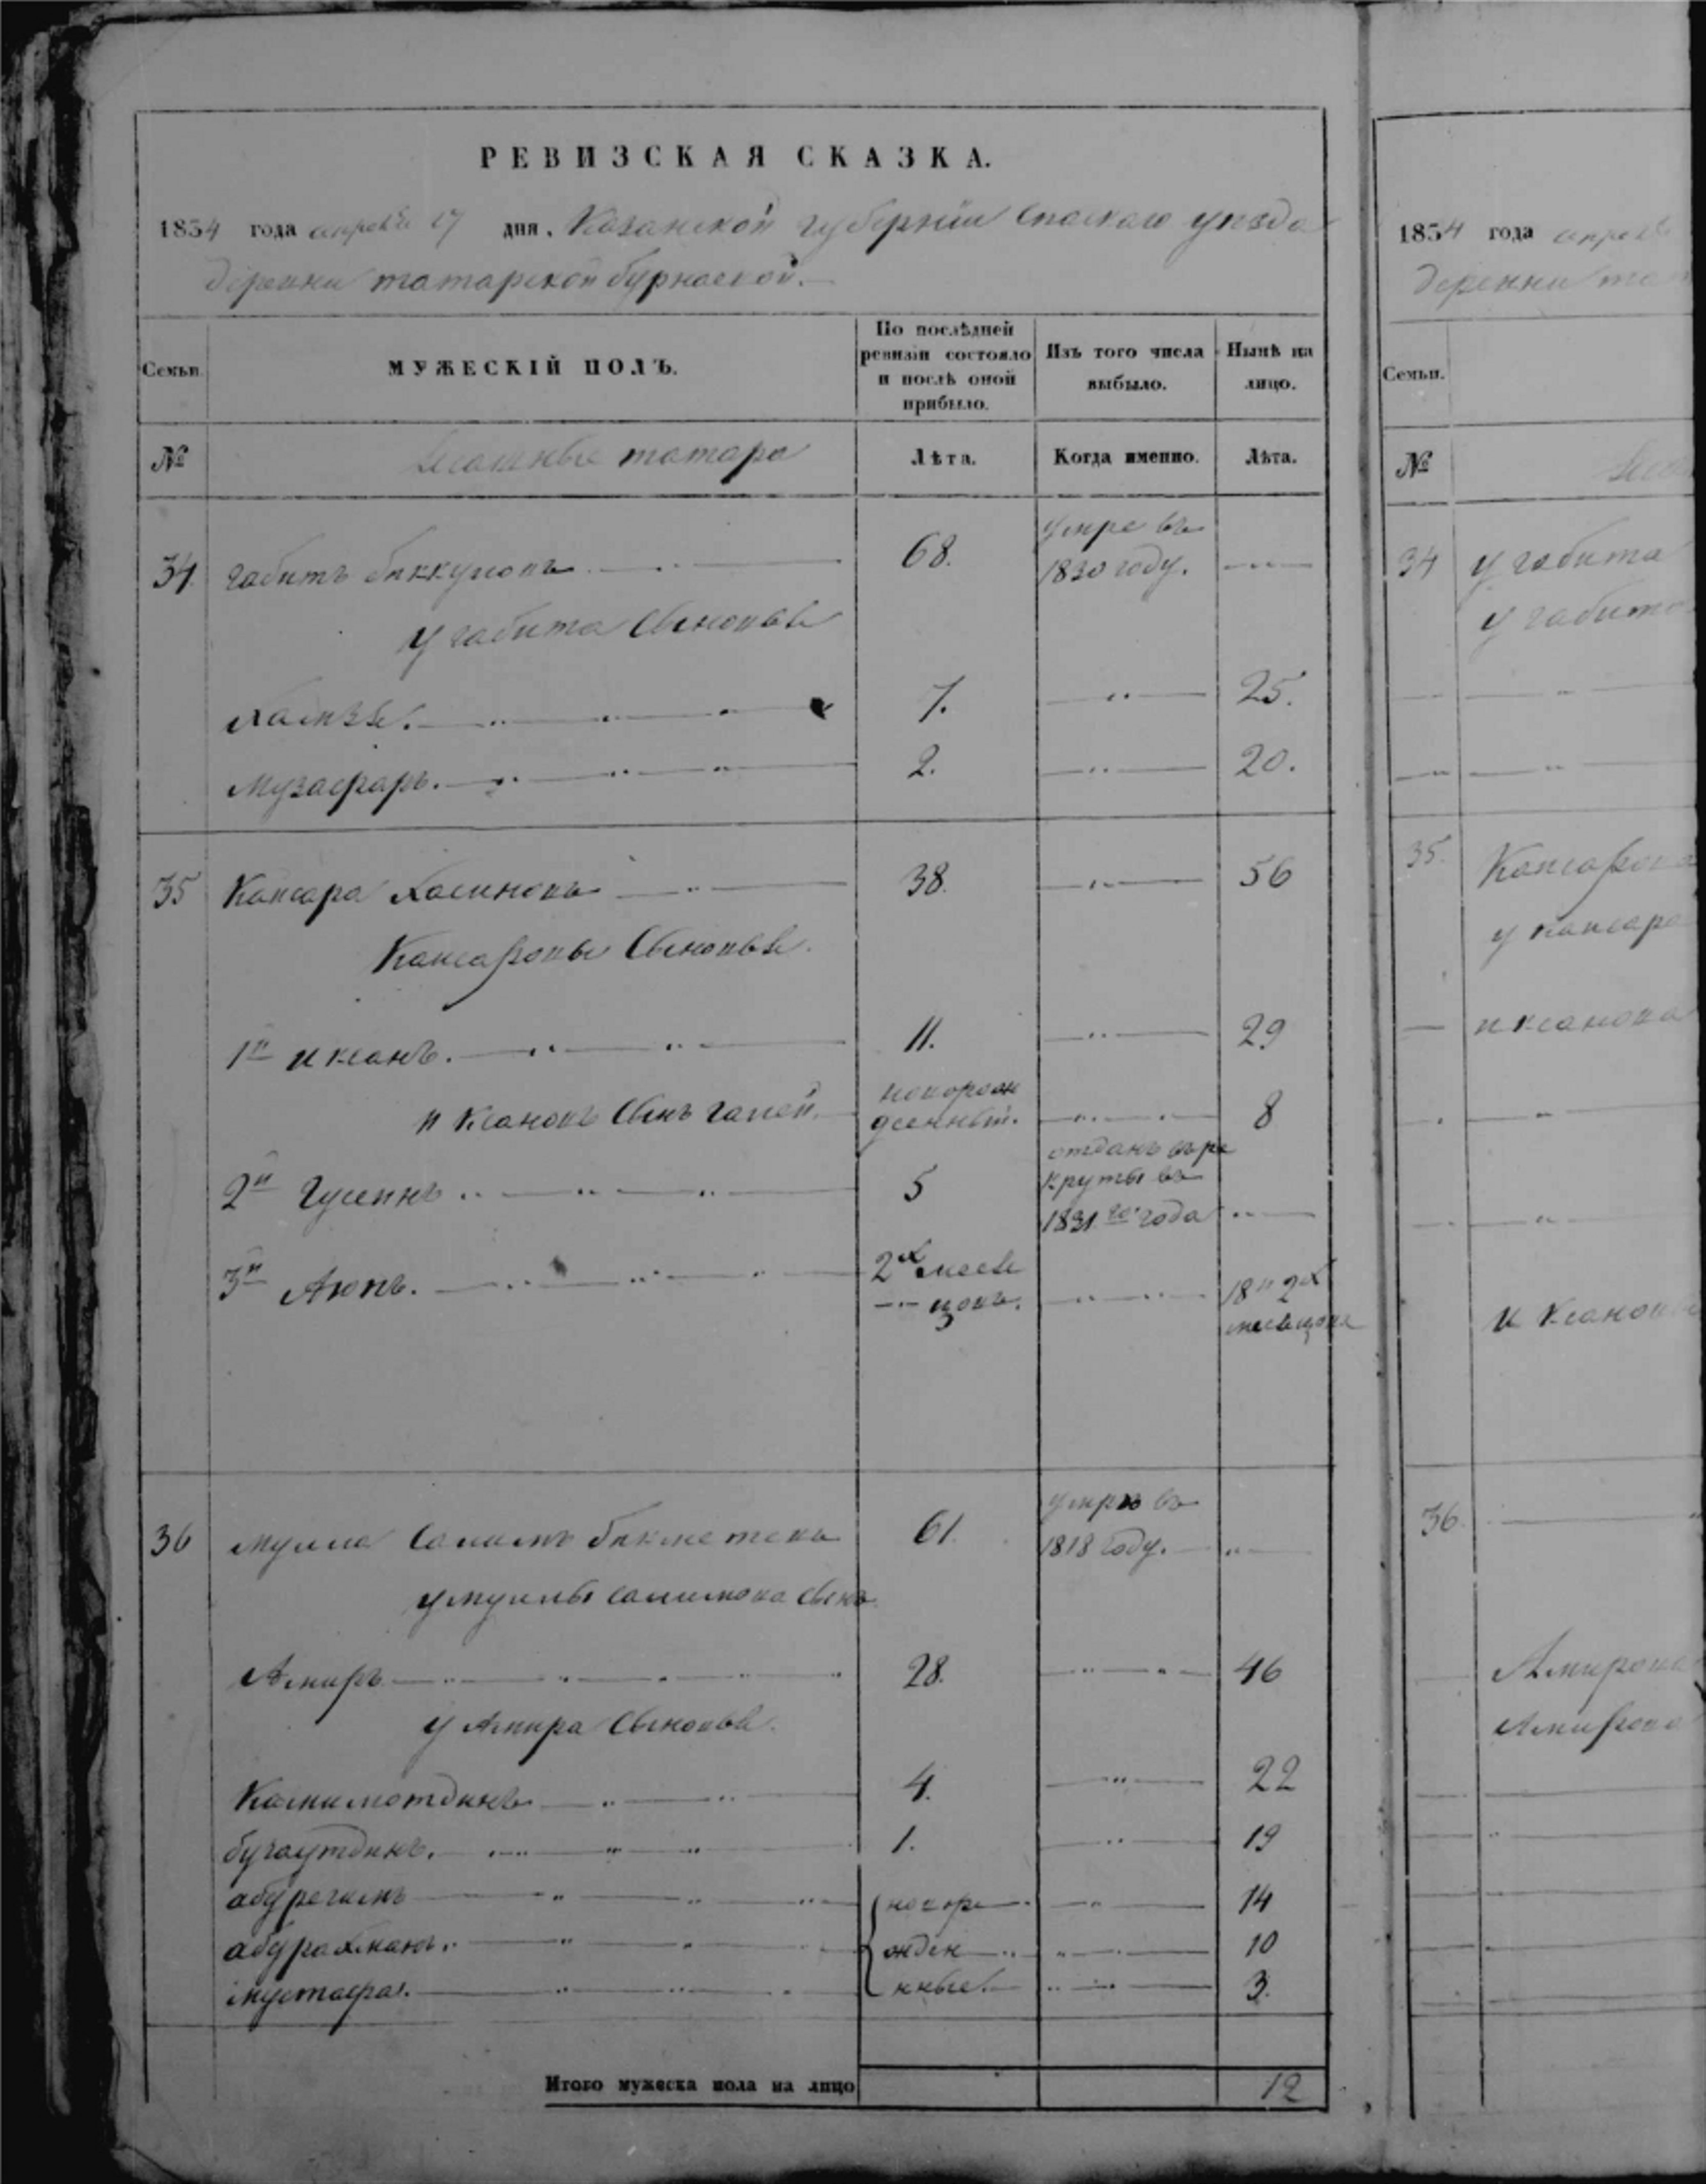 РЕВИЗСКАЯ СКАЗКА.
1834 года апреля 27 дня. Казанской губернии Спаскаго уезда
деревни татарской бурнаевой.
Семьи.
МУЖЕСКІЙ ПОЛЪ.
По послѣдней ревизіи состояло и послѣ оной прибыло.
Изъ того числа выбыло.
Нынѣ на лицо.
№ татара Лѣта. Когда именно. Лѣта.
34 габитъ биккуловъ 68. умре въ 1830 году.
у габита сыновья
хамзя. 7. 25.
музафаръ. 2. 20.
35 Кансара 38. 56
Кансаровы сыновья.
1й иксанъ. 11. 29
иксановъ сынъ галей. новорож денный. 8
2й Гусеинъ 5 отданъ въ ре круты въ 1831го года
3й Аюпъ. 2х меся цовъ. 18 и 2х месяцовъ
36 мулла Салимъ бикметевъ 61. умре въ 1818 году.
у муллы салимова сынъ
Амиръ 28. 46
у Амира сыновья.
Камилотдинъ 4. 22
бугаутдинъ. 1. 19
абурегимъ новоро 14
абурахманъ. жден 10
мустафа. нные. 3.
Итого мужеска пола на лицо 12
1834 года апреля
деревни та
Семьи.
№
34 у габита
у габита
35. Кансарова
у кансара
иксанова
иксановы
36.
Амирова
Амирова